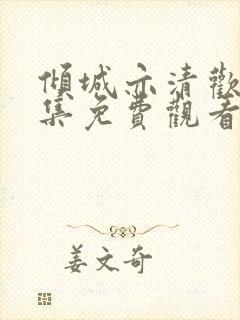 傾城亦清歡
集免費觀看
姜文奇